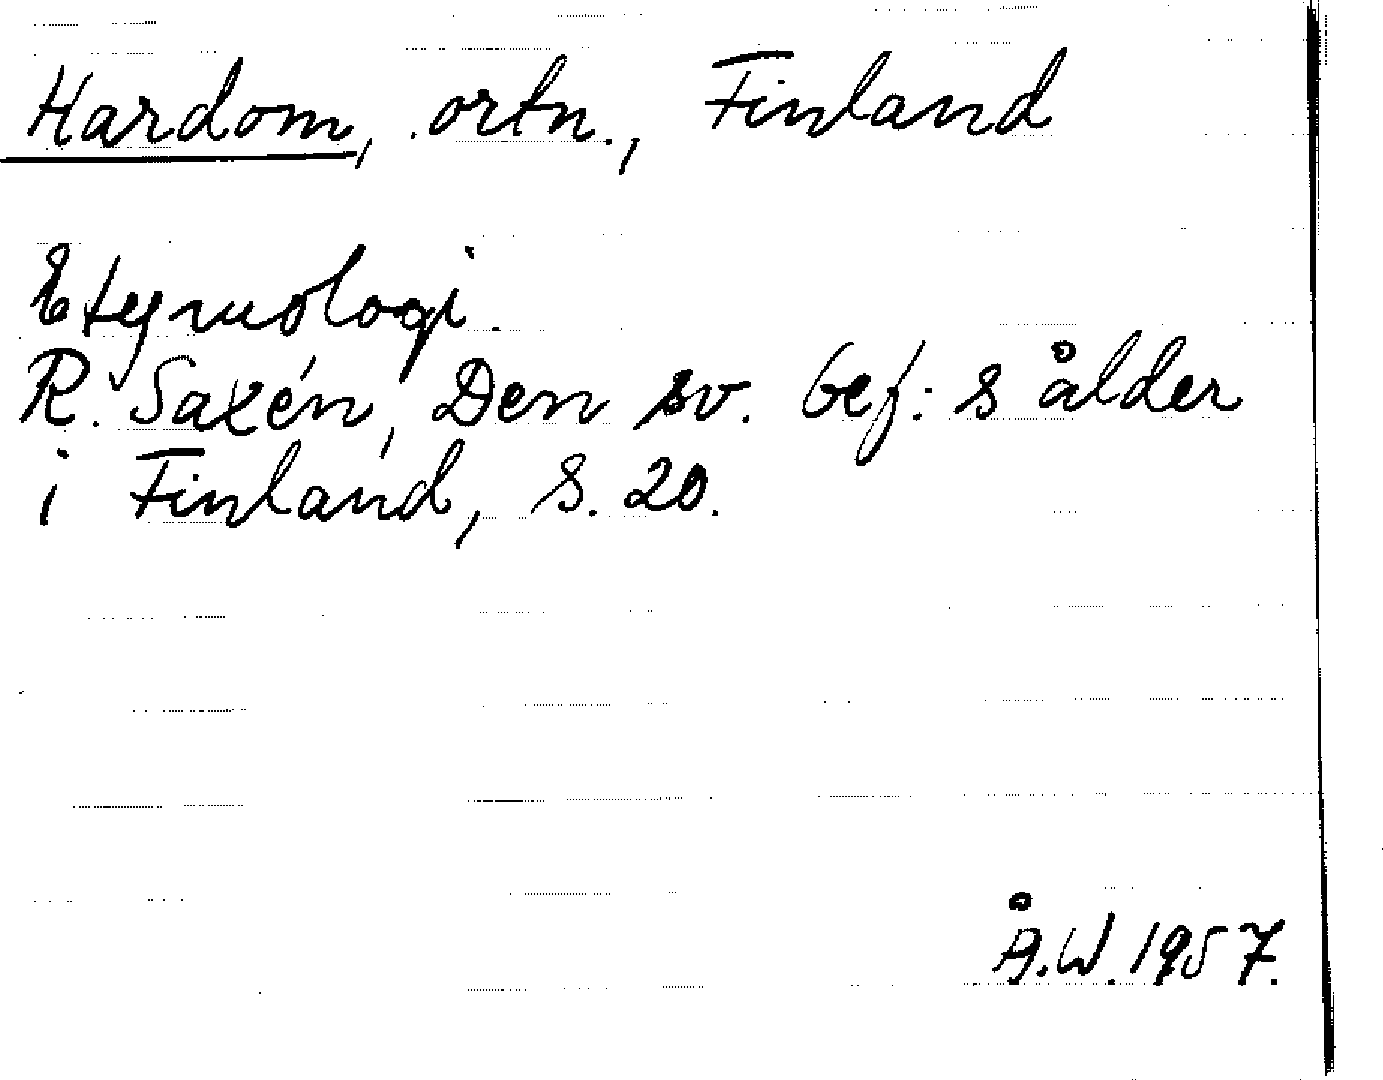 Hardom, ortn., Finland
Etymologi.
R. Saxén, Den sv. bef:s ålder
i Finland, S. 20.
Å.W. 1957.